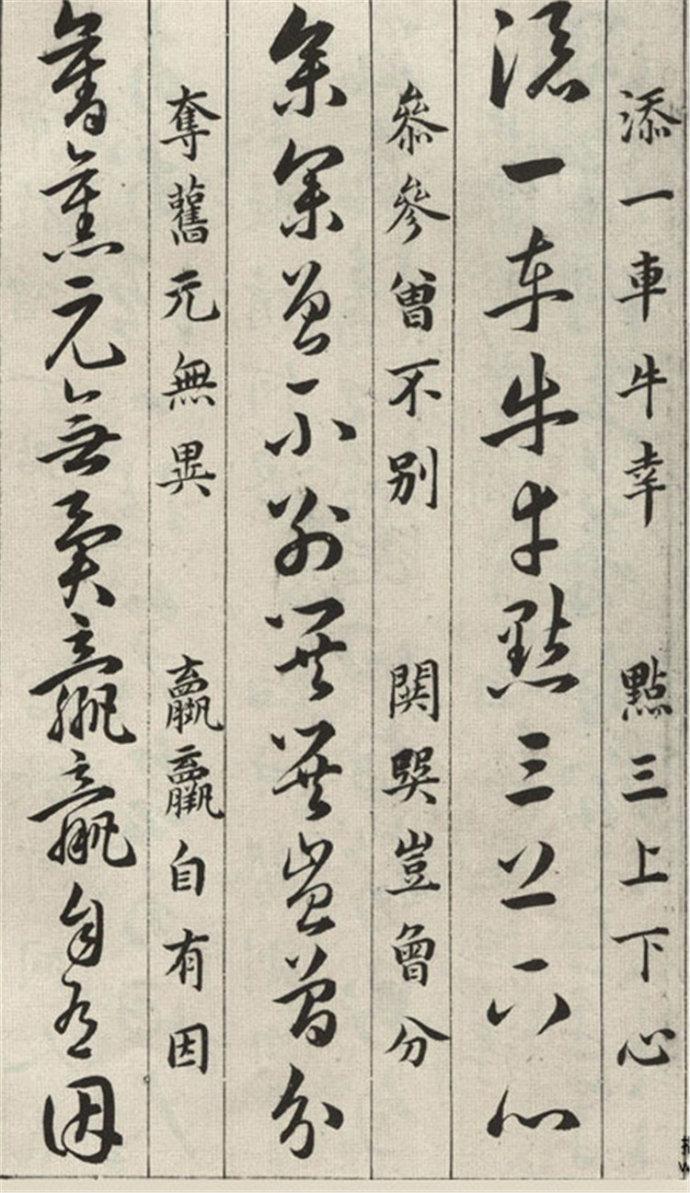 添一車牛幸 點三上下心
添一車牛幸點三上下心
叅參曾不別 関豈曾分
叅參曾不別豈曾分
奪舊元無異 自有因
奪舊元無異自有因